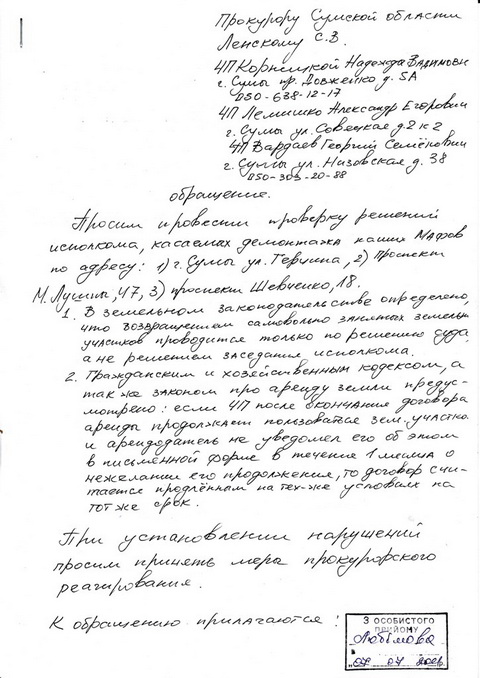 Прокурору Сумской области
Ленскому С.В.
ЧП Корницкой Надежда Вадимовн
г. Сумы пр. Довженко д. 5А
050-638-12-17
ЧП Лемишко Александр Егорович
г. Сумы ул. Советская д. 2 к 2
ЧП Вардаев Георгий Семёнович
г. Сумы ул. Низовская д. 38
050-303-20-88
обращение.
Просим провести проверку решений
исполкома, касаемых демонтажа наших МАФов
по адресу: 1) г. Сумы ул. Герцина, 2) Проспект
М. Лушпы, 47, 3) проспект Шевченко, 18.
1. В земельном законодательстве определено,
что возвращением самовольно занятых земельн
участков проводится только по решению суда,
а не решением заседания исполкома.
2. Гражданским и хозяйственным кодексом, а
так же законом про аренду земли предус-
мотрено: если ЧП после окончания договора
аренды продолжает пользоватся зем. участко
и арендодатель не уведомел его об этом
в письменной форме в течение 1 месяца о
нежелании его продолжения, то договор счи-
тается продлённым на тех-же условиях на
тот же срок.
При установлении нарушений
просим принять меры прокурорского
реагирования.
К обращению прилагаются:
З ОСОБИСТОГО
ПРИЙОМУ
Любімова
07 07